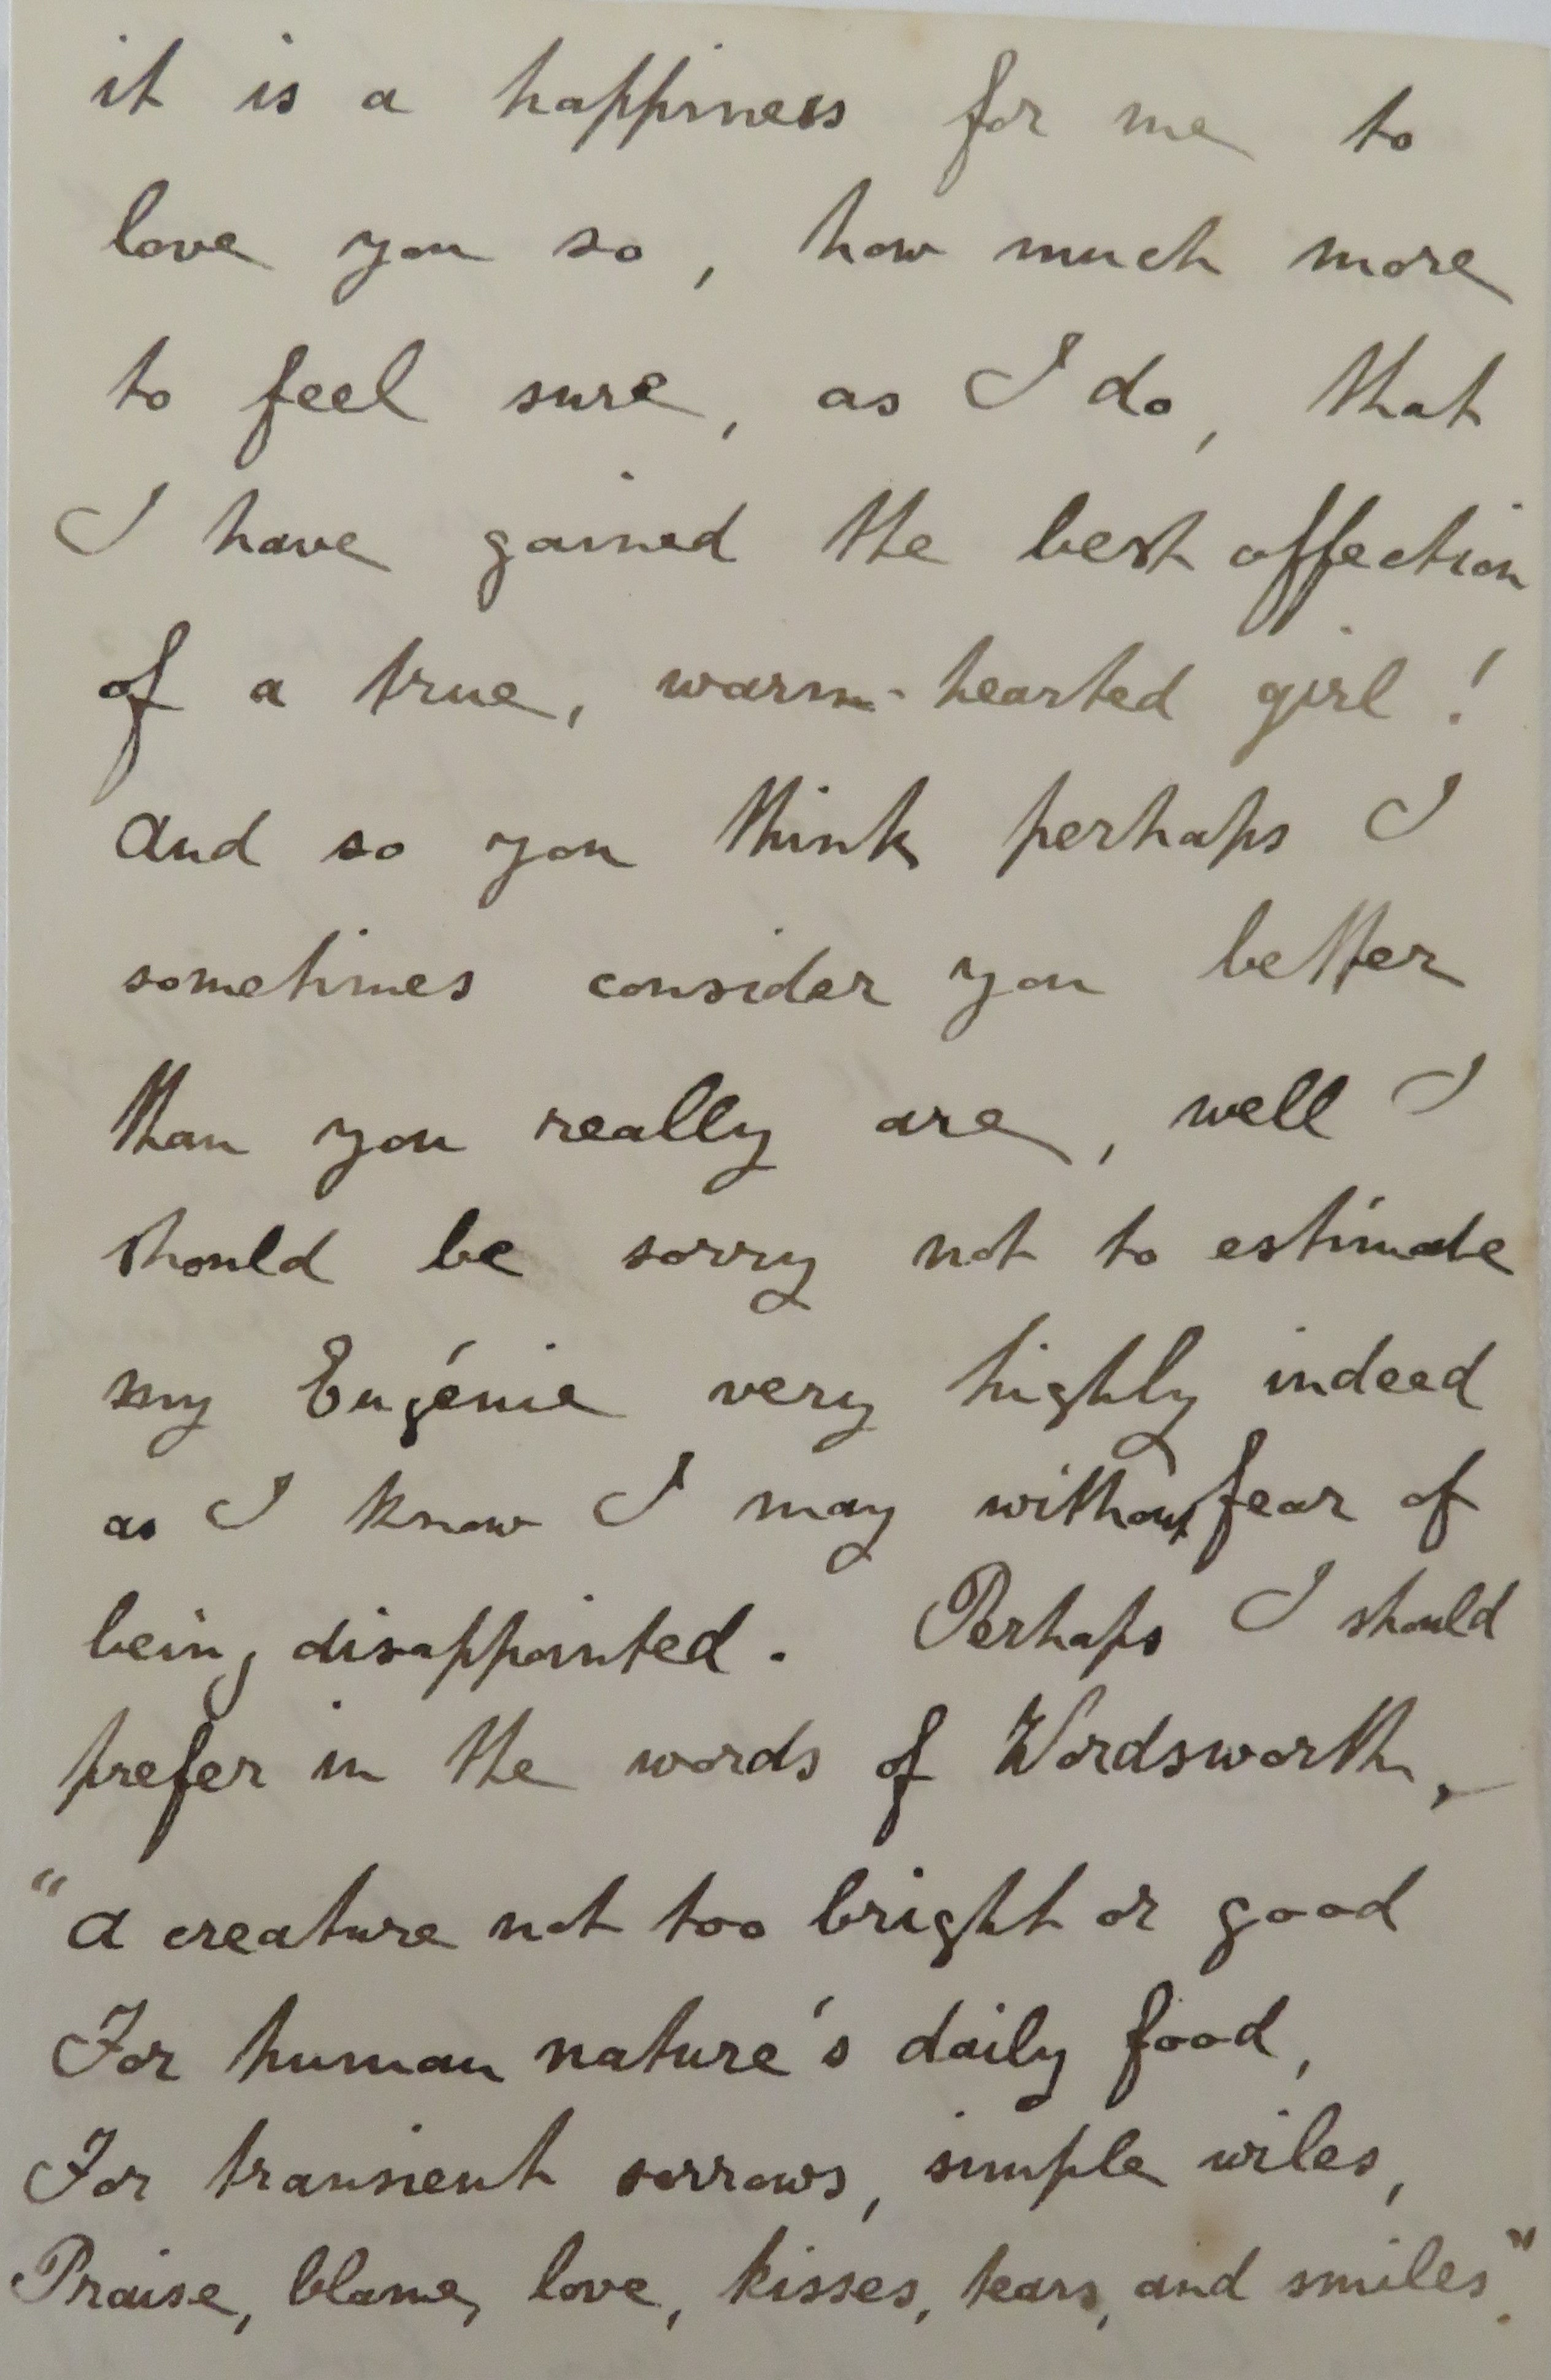 it is a happiness for me to
love you so, how much more
to feel sure, as I do, that
I have gained the best affection
of a true, warm-hearted girl!
And so you think perhaps I
sometimes consider you better
than you really are, well I
should be sorry not to estimate
my Eugénie very highly indeed
as I know I may without fear of
being disappointed. Perhaps I should
prefer in the words of Wordsworth,
"A creature not too bright or good
For human nature's daily food,
For transient sorrows, simple wiles,
Praise, blame, love, kisses, tears, and smiles".